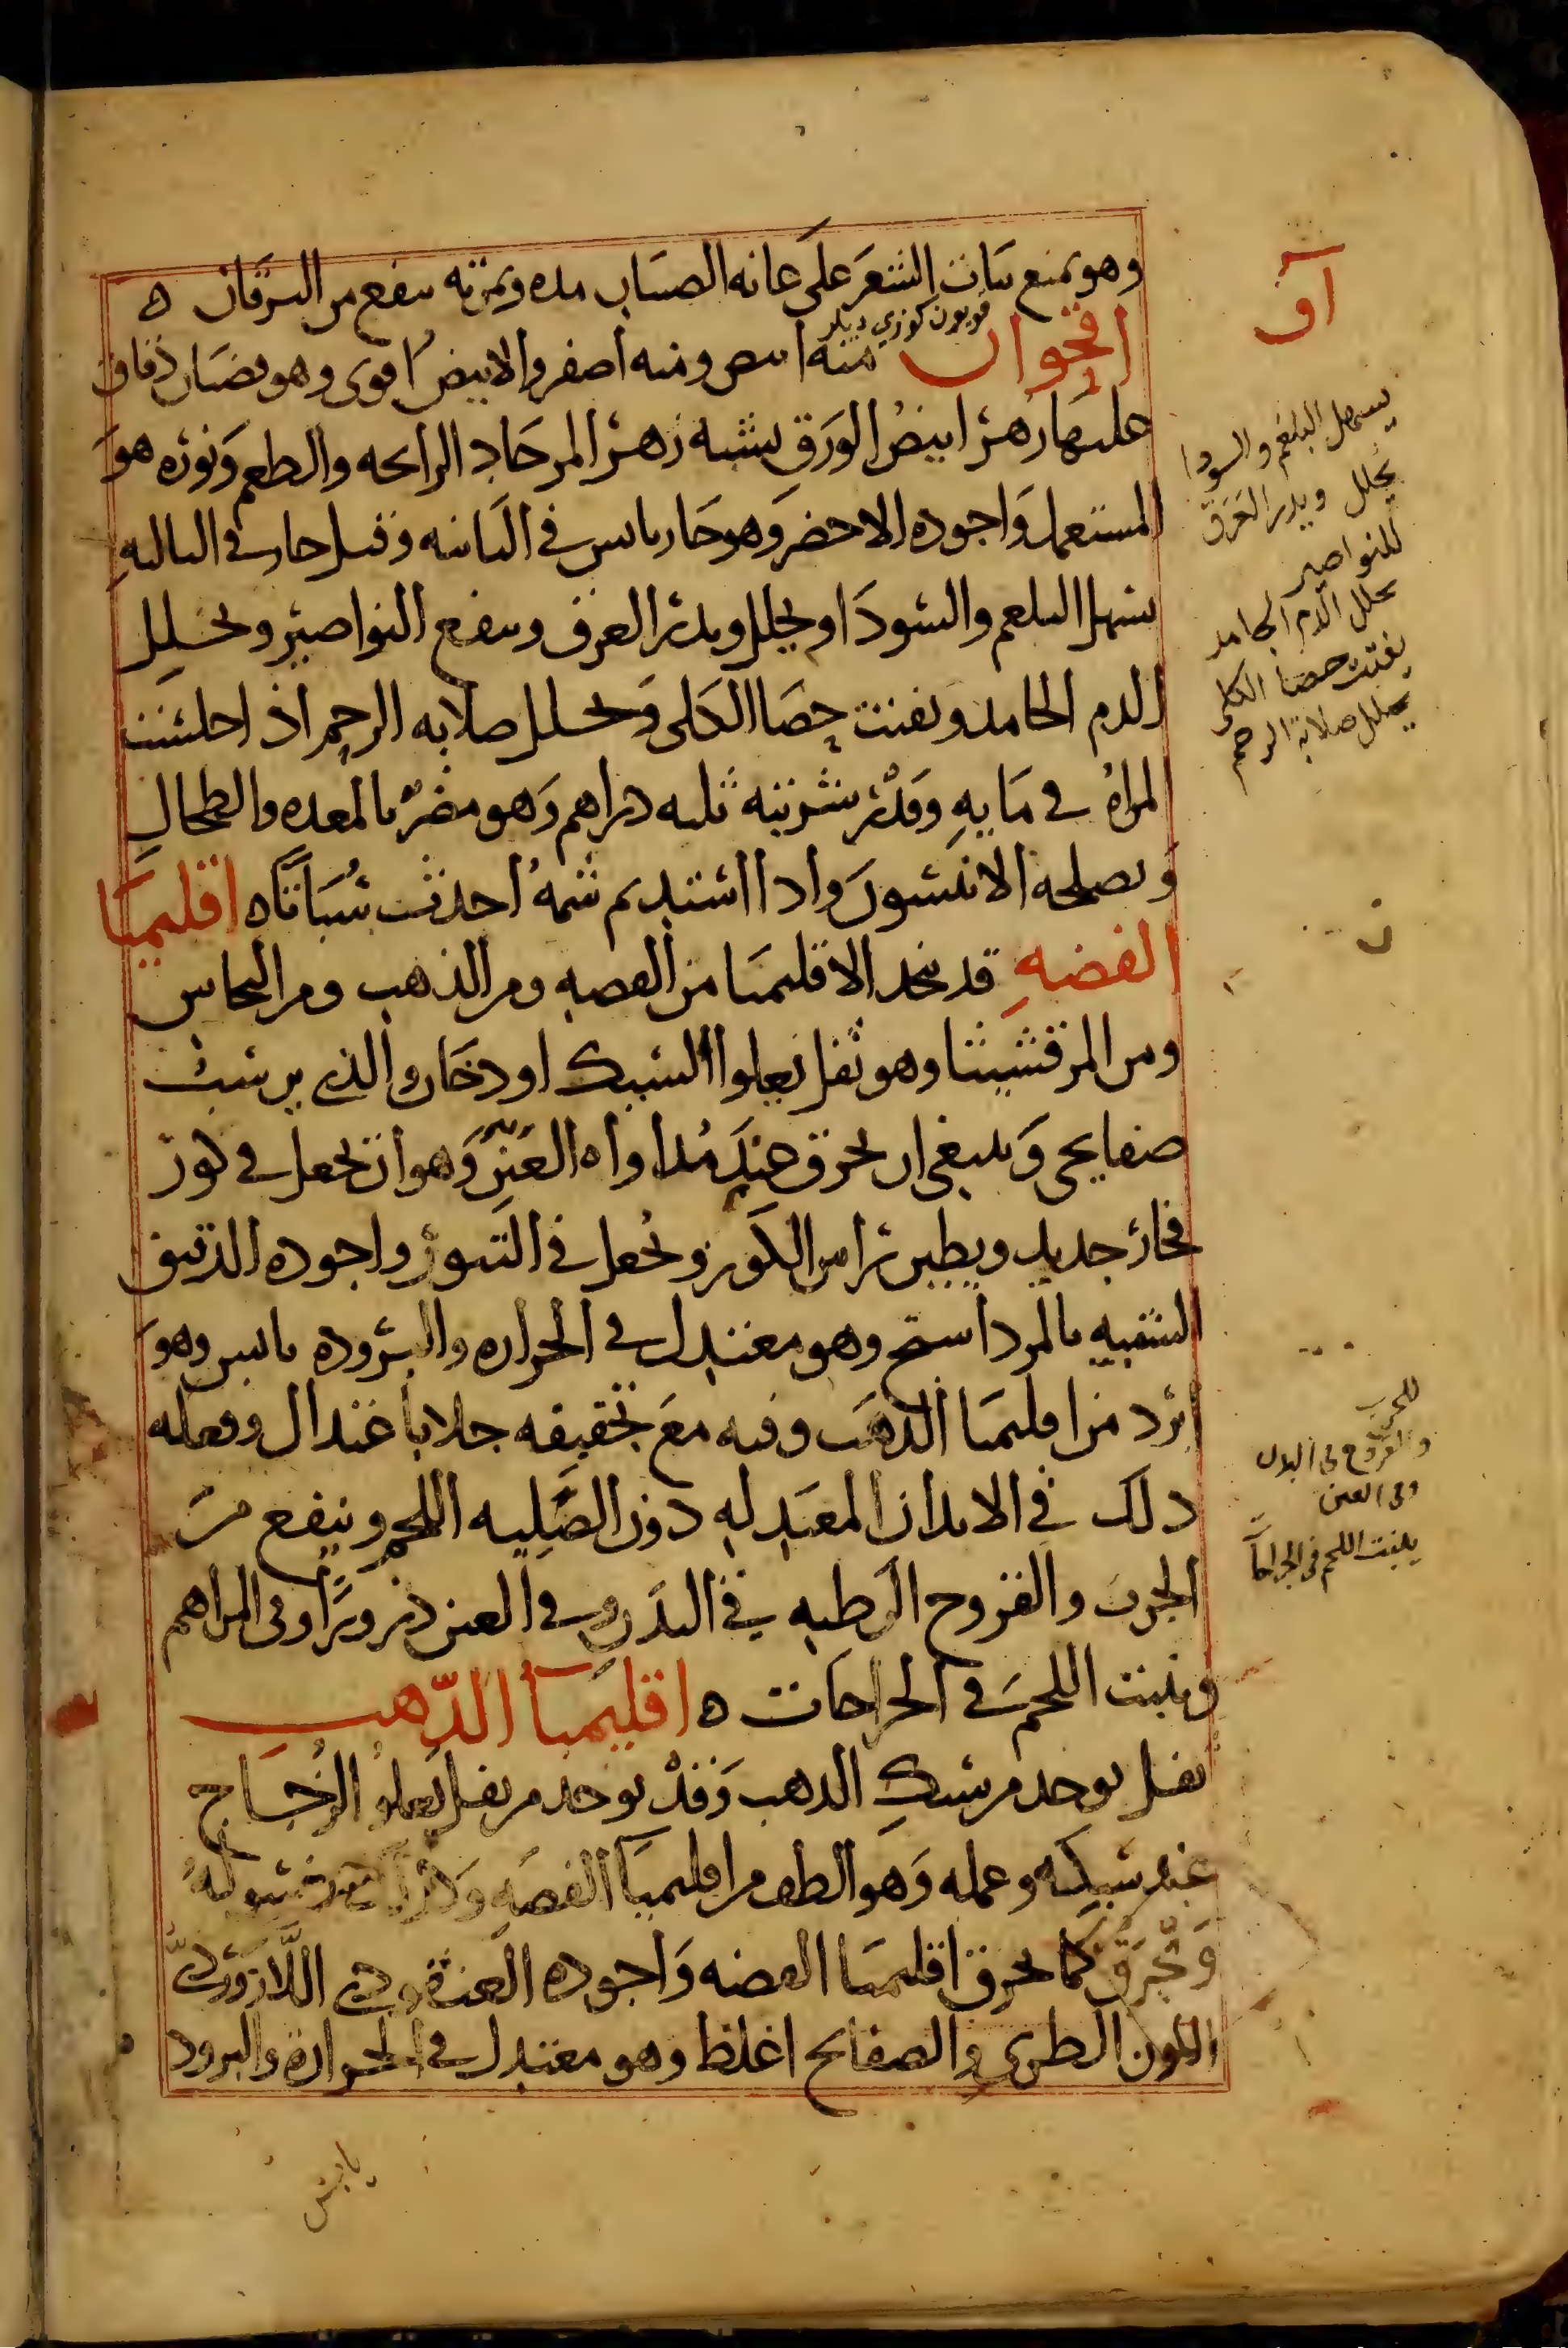 وهو يمنع نبات الشعر على عانه الصبيان مده وثمرته ينفع من اليرقان ه
اقحوان منه ابيض ومنه اصفر والابيض اقوى وهو قضبان دقاق
قويون كوزي ديلر
عليها زهر ابيض الورق يشبه زهر المر حاد الرايحه والطعم ونوره هو
المستعمل واجوده الاخضر وهو حار يابس في الثانيه وقيل حار في الثالثه
يسهل البلغم والسودا ويحلل ويدر العرق وينفع النواصير ويحلل
الدم الجامد ويفتت حصا الكلى ويحلل صلابه الرحم اذا جلست
المراه في مايه وقدر شربته ثلثه دراهم وهو مضر بالمعده والطحال
ويصلحه الانيسون واذا استديم شمه احدث سباتا ه اقليميا
الفضه قد يتخذ الاقليميا من الفضه ومن الذهب ومن النحاس
ومن المرقشيثا وهو ثفل يعلوا السبك او دخان والذي يرسب
صفايحي وينبغي ان يحرق عند مداواه العين وهو ان يجعل في كوز
فخار جديد ويطين راس الكوز ويجعل في التنور واجوده الدقيق
الشبيه بالمرداسنج وهو معتدل في الحراره والبروده يابس وهو
ابرد من اقليميا الذهب وفيه مع تجفيفه جلا باعتدال وفعله
ذلك في الابدان المعتدله دون الصلبه اللحم وينفع من
الجرب والقروح الرطبه في البدن وفي العين ذرورا وفي المراهم
وينبت اللحم في الجراحات ه اقليميا الذهب
ثفل يوجد من سبك الذهب وقد يوخد من ثفل يعلو الزجاج
عند سبكه وعمله وهو الطف من اقليميا الفضه
ويحرق كما يحرق اقليميا الفضه واجوده العنقودي اللازوردي
اللون الطري والصفايح اغلظ وهو معتدل في الحرارة والبرود
يابس
آق
يسهل البلغم والسودا
يحلل ويدر العرق
للنواصير
يحلل الدم الجامد
يفتت حصا الكلى
يحلل صلابة الرحم
ن
للجرب
والقروح في البدن
وفي العين
ينبت اللحم في الجراحا